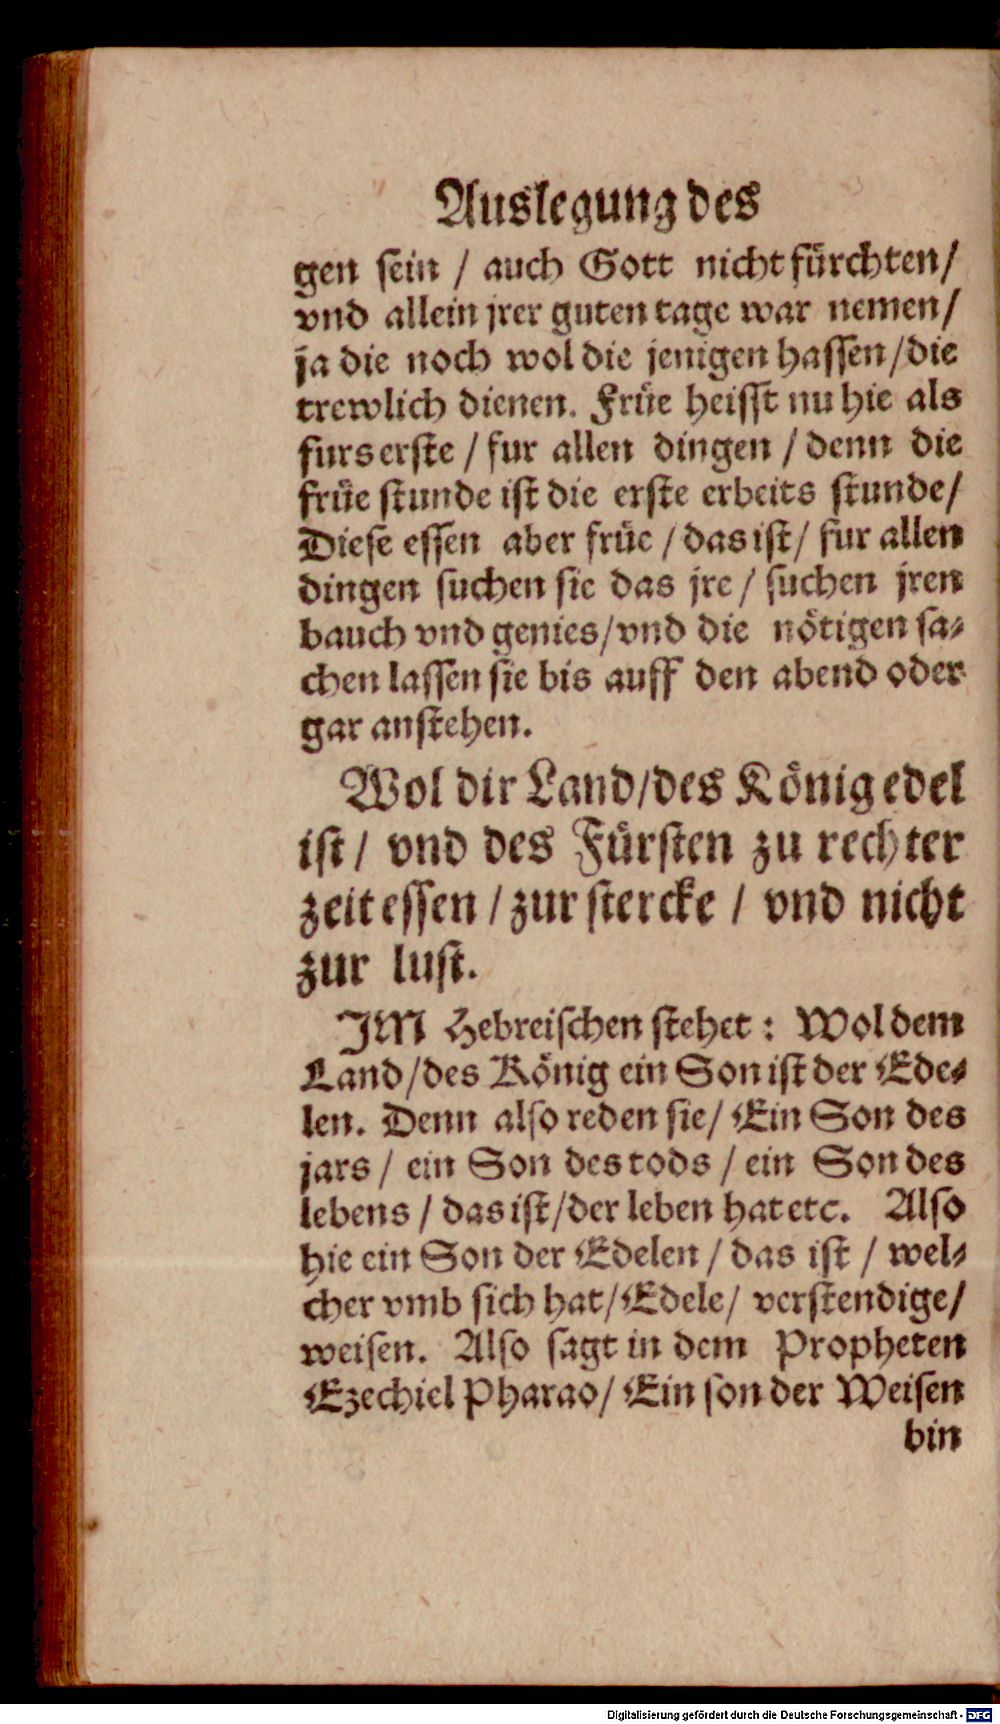 Auslegung des
gen sein / auch Gott nicht fürchten/
vnd allein jrer guten tage war nemen/
ja die noch wol die jenigen hassen/die
trewlich dienen. Früe heisst nu hie als
furs erste / fur allen dingen / denn die
früe stunde ist die erste erbeits stunde/
Diese essen aber früe / das ist/ fur allen
dingen suchen sie das jre / suchen jren
bauch vnd genies/vnd die nötigen sa-
chen lassen sie bis auff den abend oder
gar anstehen.
Wol dir Land/des König edel
ist / vnd des Fürsten zu rechter
zeit essen / zur stercke / vnd nicht
zur lust.
JM Hebreischen stehet : Wol dem
Land/des König ein Son ist der Ede-
len. Denn also reden sie/ Ein Son des
jars / ein Son des tods / ein Son des
lebens / das ist/der leben hat etc. Also
hie ein Son der Edelen / das ist / wel-
cher vmb sich hat/Edele/ verstendige/
weisen. Also sagt in dem Propheten
Ezechiel Pharao/ Ein son der Weisen
bin
Digitalisierung gefördert durch die Deutsche Forschungsgemeinschaft - DFG